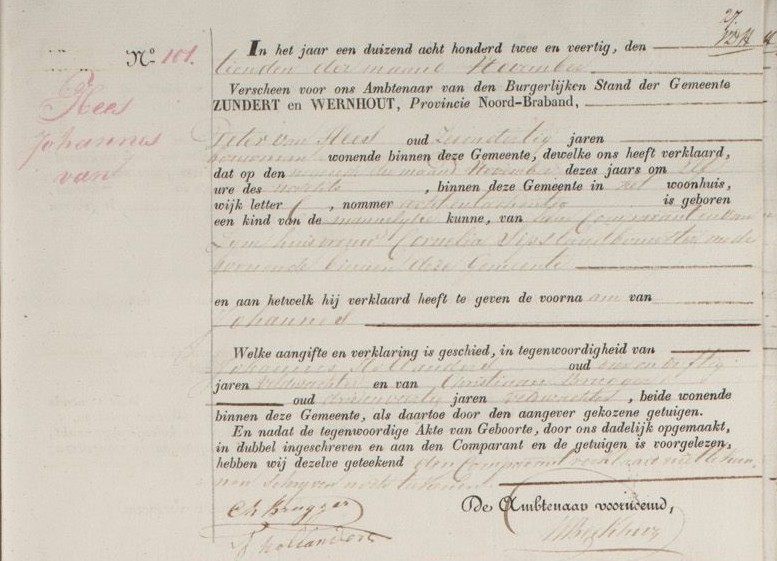 Nº 101.
Hees
Johannes
van
In het jaar een duizend acht honderd twee en veertig, den
tienden der maand November
Verscheen voor ons Ambtenaar van den Burgerlijken Stand der Gemeente
ZUNDERT en WERNHOUT, Provincie Noord-Braband,
Peter van Hees oud jaren
bouwman wonende binnen deze Gemeente, dewelke ons heeft verklaard,
dat op den der maand November dezes jaars om elf
ure des nachts, binnen deze Gemeente in zijn woonhuis,
wijk letter C, nommer achtentachentig is geboren
een kind van de mannelijke kunne, van hem Comparant en van
zijne huisvrouw Cornelia mede
wonende binnen deze Gemeente
en aan hetwelk hij verklaard heeft te geven de voornaam van
Johannes
Welke aangifte en verklaring is geschied, in tegenwoordigheid van
Johannes Hollanders oud en vijftig
jaren veldwachter en van Christiaan Brugger
oud jaren, beide wonende
binnen deze Gemeente, als daartoe door den aangever gekozene getuigen.
En nadat de tegenwoordige Akte van Geboorte, door ons dadelijk opgemaakt,
in dubbel ingeschreven en aan den Comparant en de getuigen is voorgelezen,
hebben wij dezelve geteekend den Comparant verklaard niet te kun-
nen schrijven noch teekenen.
Ch Brugger
J Hollanders
De Ambtenaar voornoemd,